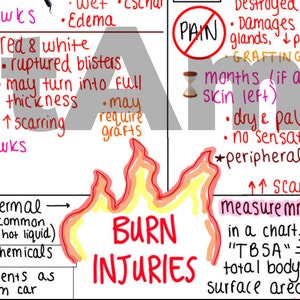 wet · Eschar
wks
• Edema
red & white
• ruptured blisters
• may turn into full
thickness
• may
require
grafts
↑ scarring
wks
Destroyed
PAIN
• Damages
glands, ↓ p
• GRAFTING
months (if a
skin left)
• dry & pal
• no sensa
* peripheral
↑↑ scar
ermal →
common
hot liquid)
hemicals
ents as
m car
BURN
INJURIES
measurem
in a chart.
"TBSA" =
total body
surface area